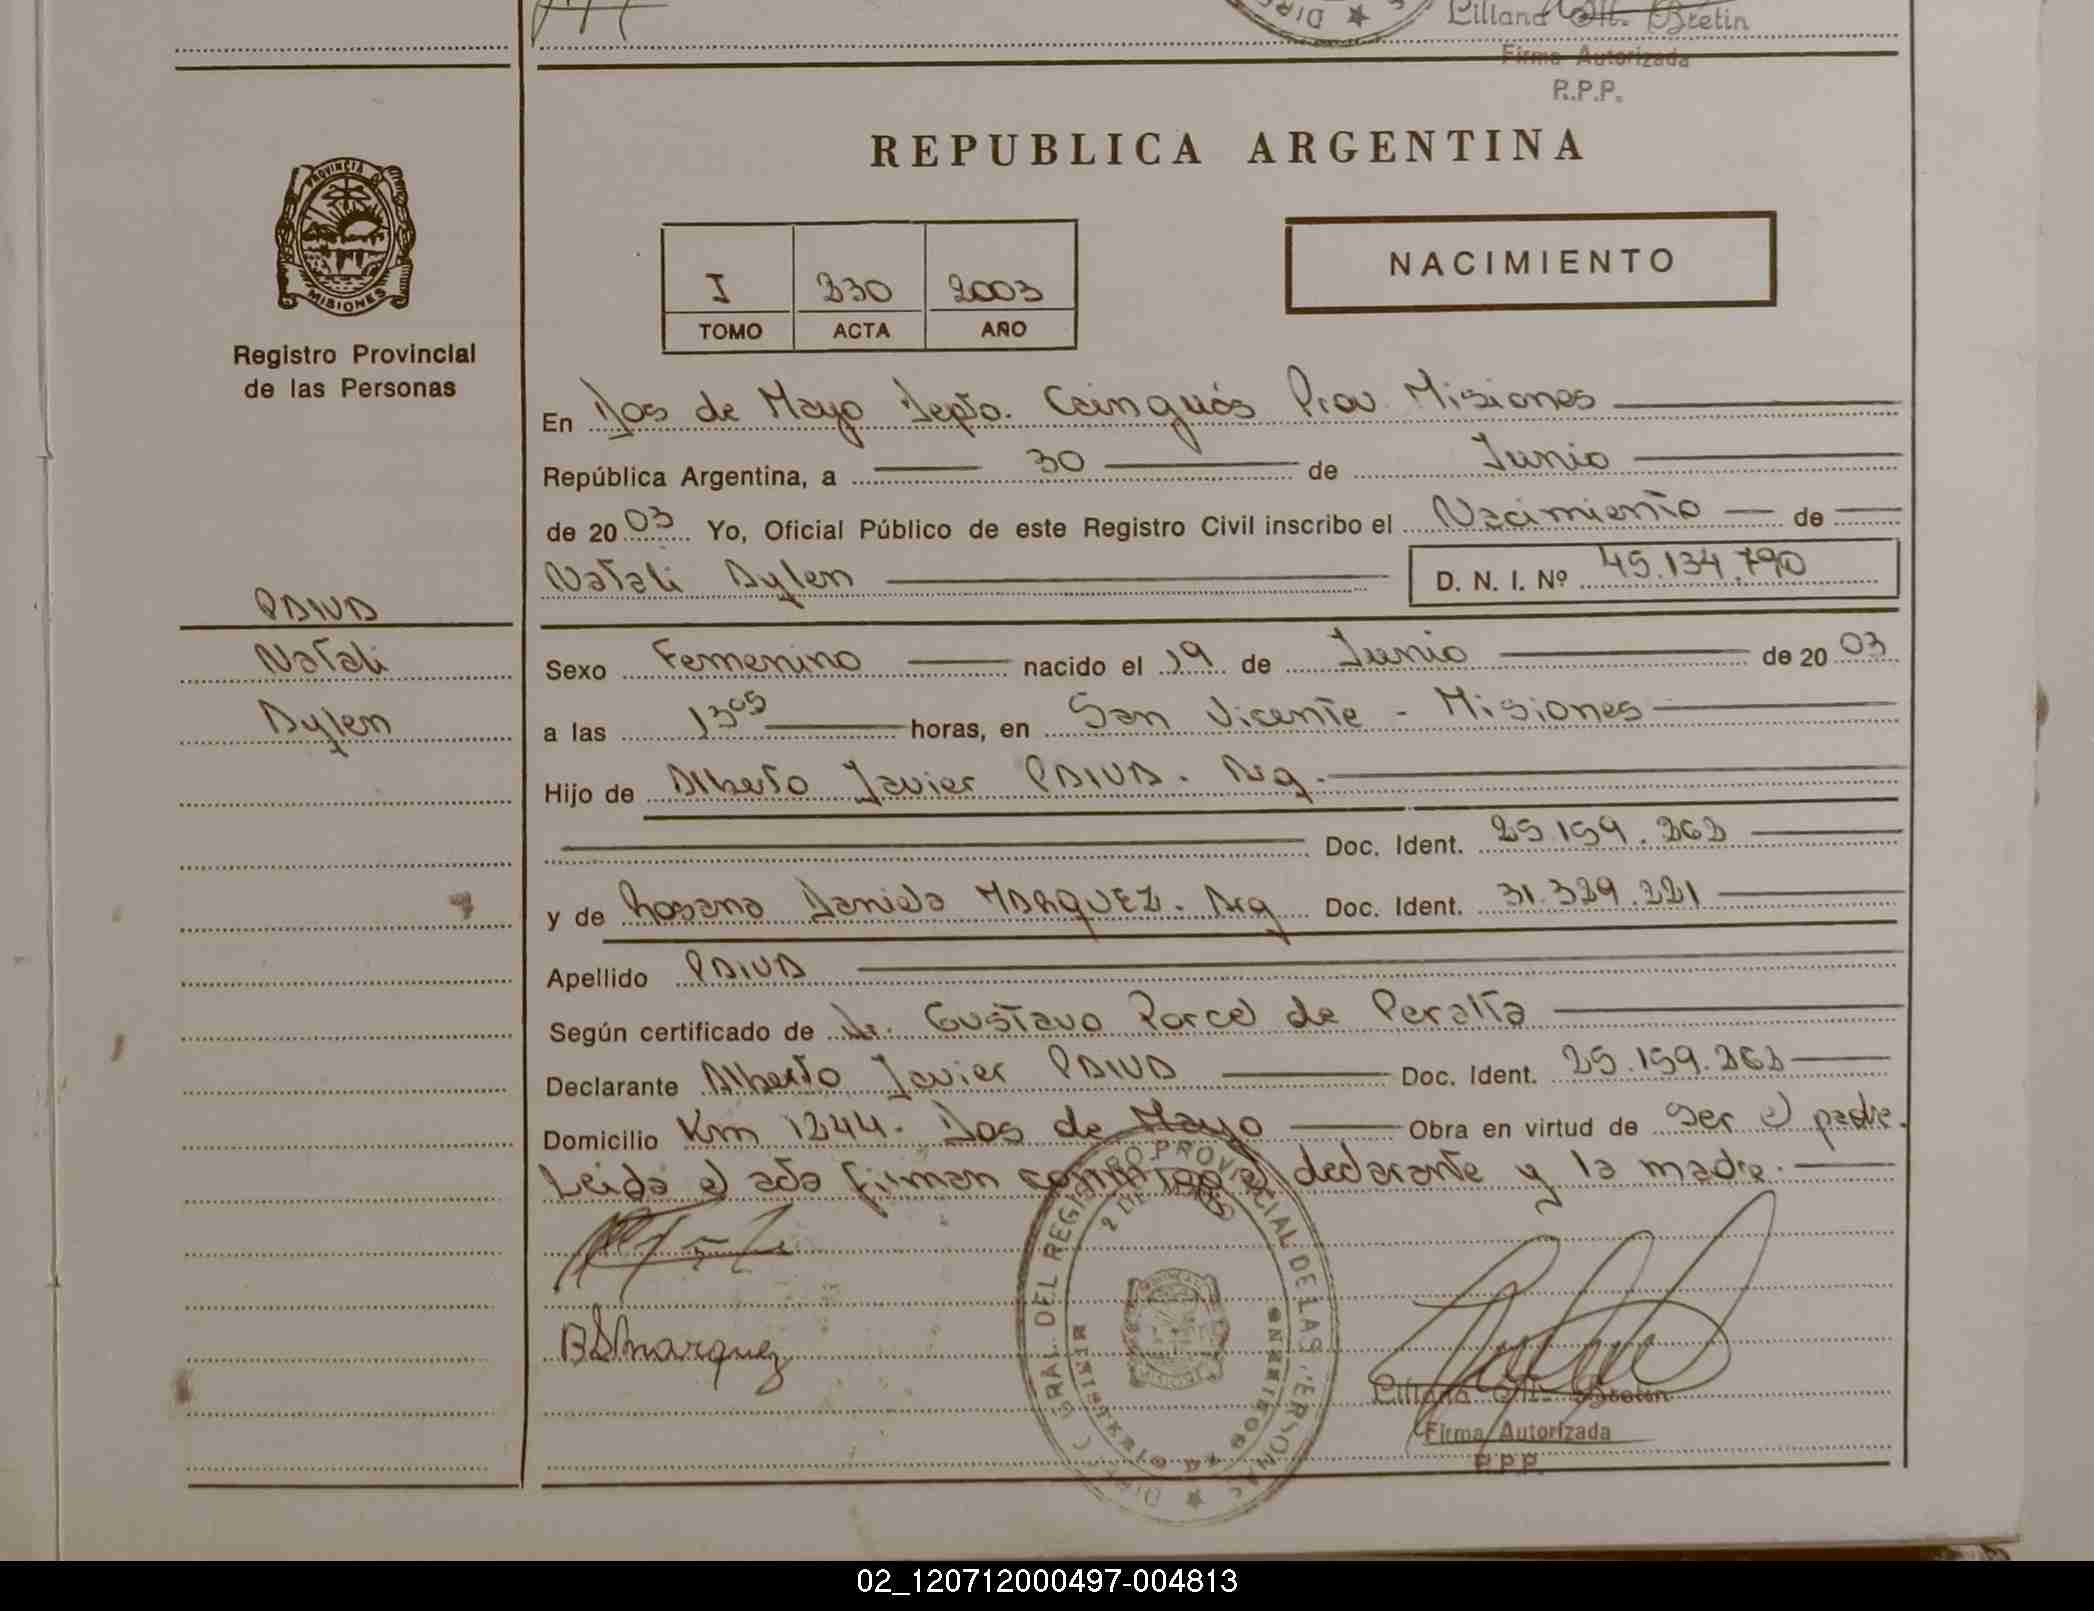 Liliana M. Bretin
Firma Autorizada
R.P.P.
REPUBLICA ARGENTINA
PROVINCIA D
MISIONES
Registro Provincial
de las Personas
I 330 2003
TOMO ACTA AÑO
NACIMIENTO
En Dos de Mayo Depto. Cainguás Prov. Misiones
República Argentina, a 30 de Junio
de 2003 Yo, Oficial Público de este Registro Civil inscribo el Nacimiento de
Natali Aylen D. N. I. Nº 45.134.790
PAIVA
Natali
Aylen
Sexo Femenino nacido el 19 de Junio de 2003
a las 13 05 horas, en San Vicente - Misiones
Hijo de Alberto Javier PAIVA. Arg.
Doc. Ident. 25.159.363
y de Rosana Daniela MARQUEZ. Arg Doc. Ident. 31.329.221
Apellido PAIVA
Según certificado de Dr. Gustavo Porcel de Peralta
Declarante Alberto Javier PAIVA Doc. Ident. 25.159.363
Domicilio Km 1244. Dos de Mayo Obra en virtud de ser el padre.
Leida el acta firman conmigo el declarante y la madre.
DEL REGISTRO PROVINCIAL DE LAS PERSONAS
marquez
Liliana M. Bretin
Firma Autorizada
R.P.P.
02_120712000497-004813